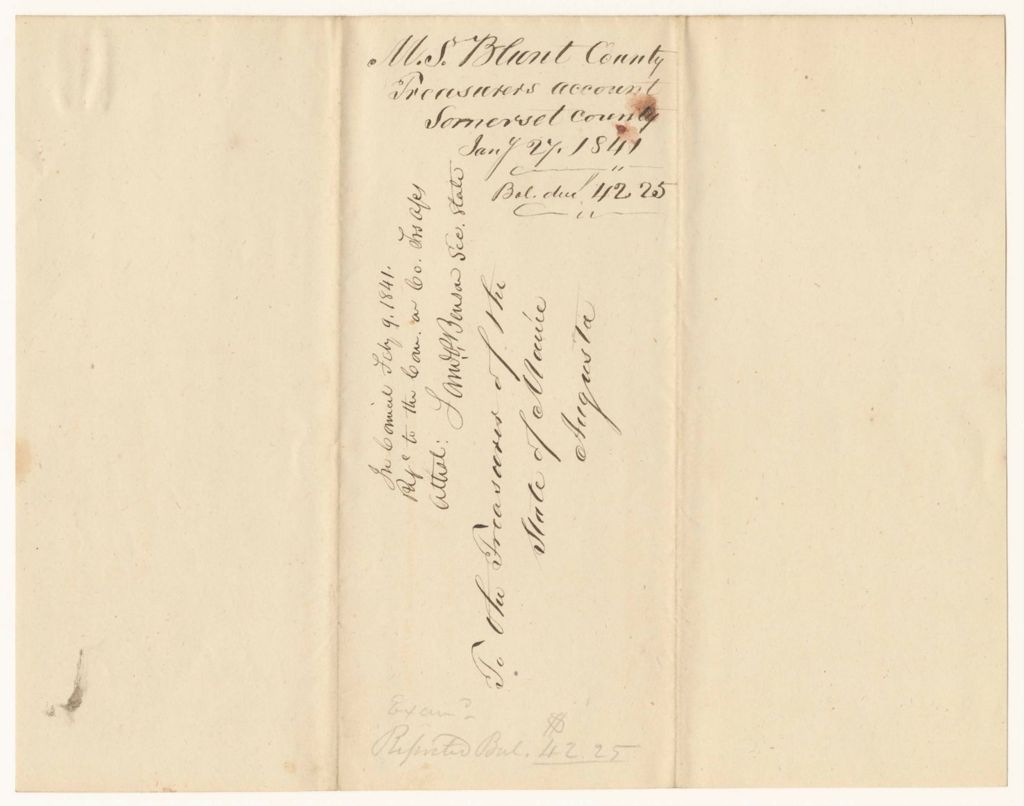 M. S. Blunt County
Treasurers account
Somerset county
Jany 27. 1841
Bal. due 42 25
In Council Feby 9. 1841.
Refd to the Com. on Co. Trs aps
Attest: Saml P. Benson Sec. State
To the Treasurer of the
State of Maine
Augusta
Examd
Reported Bal. $42.25